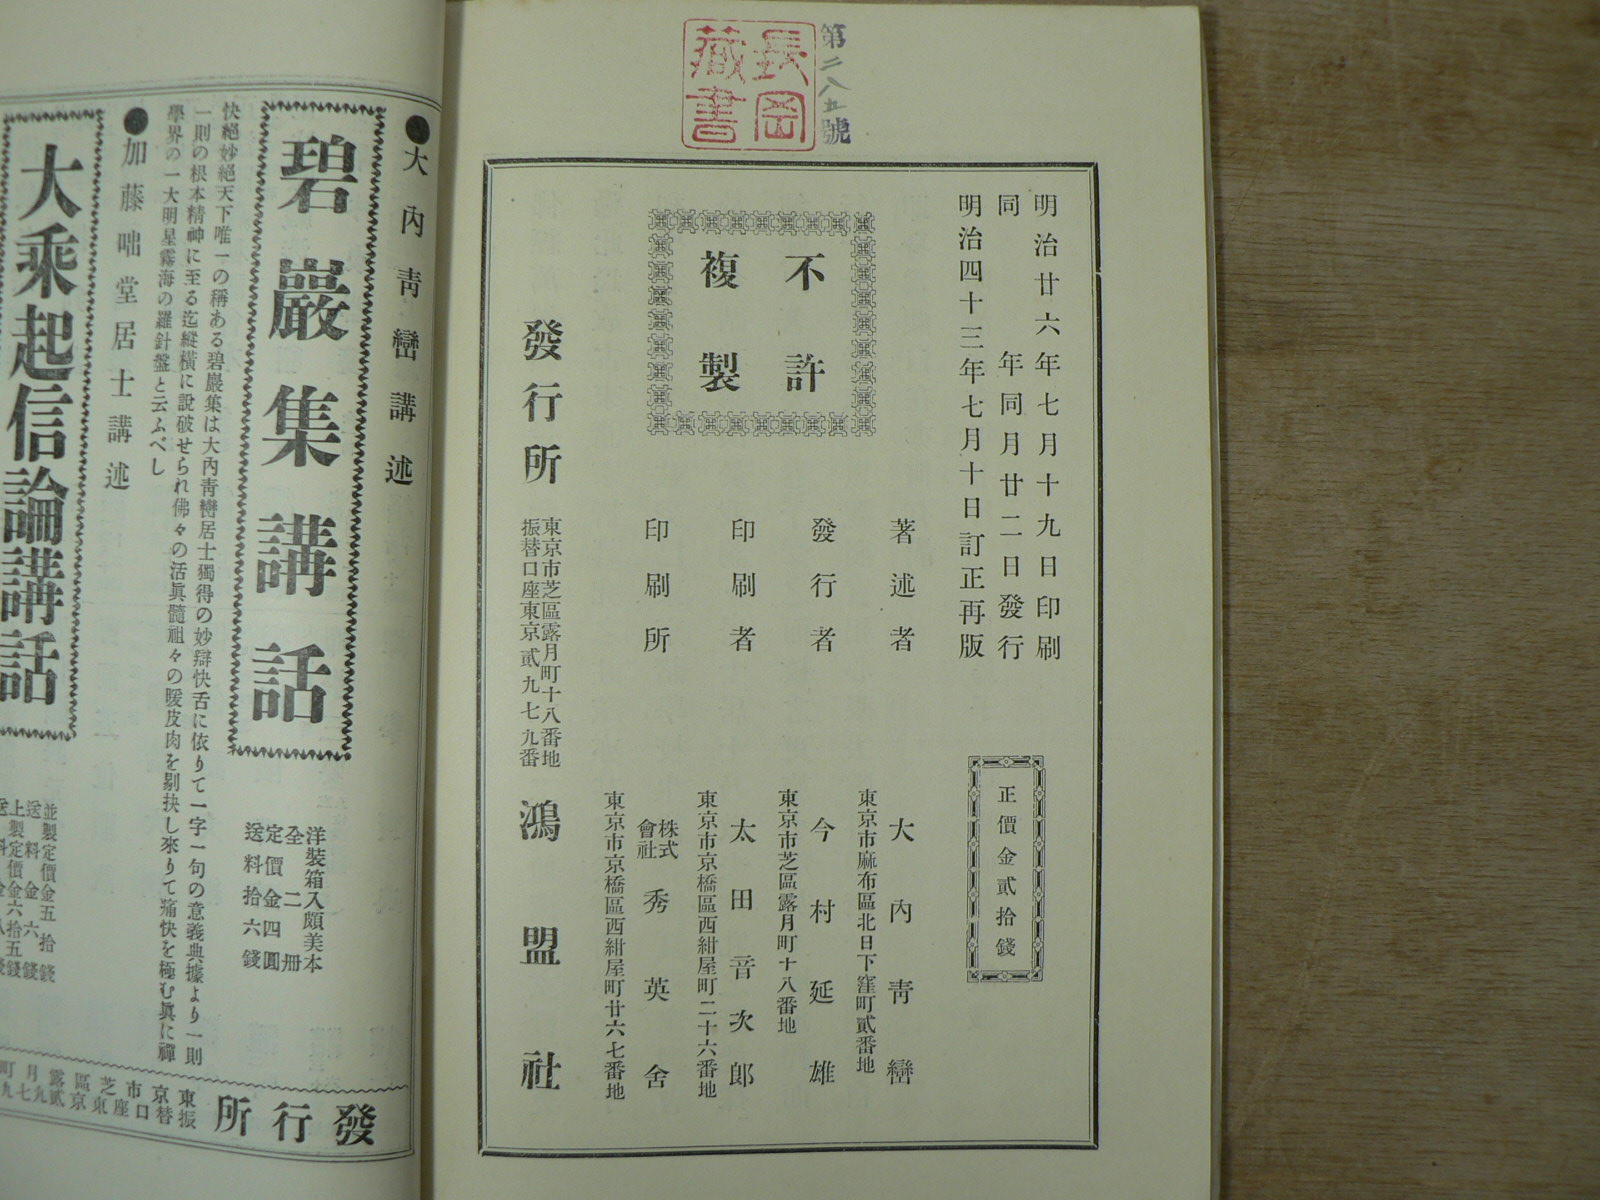 第二八五號
長岡
藏書
明治廿六年七月十九日印刷
同年同月廿二日發行
明治四十三年七月十日訂正再版
正價金貳拾錢
不許
複製
著述者
大內靑巒
東京市麻布區北日下窪町貳番地
發行者
今村延雄
東京市芝區露月町十八番地
印刷者
太田音次郎
東京市京橋區西紺屋町二十六番地
印刷所
株式
會社
秀英舍
東京市京橋區西紺屋町廿六七番地
發行所
東京市芝區露月町十八番地
振替口座東京貳九七九番
鴻盟社
●大內靑巒講述
碧巖集講話
洋裝箱入頗美本
全二册
定價金四圓
送料拾六錢
快絕妙絕天下唯一の稱ある碧巖集は大內靑巒居士獨得の妙辯快舌に依りて一字一句の意義典據より一則
一則の根本精神に至る迄縱橫に說破せられ佛々の活眞髓祖々の暖皮肉を剔抉し來りて痛快を極む眞に禪
學界の一大明星霧海の羅針盤と云ふべし
●加藤咄堂居士講述
大乘起信論講話
並製定價金五拾錢
送料金六錢
上製定價金六拾五錢
發行所
東京市芝區露月町
振替口座東京貳九七九